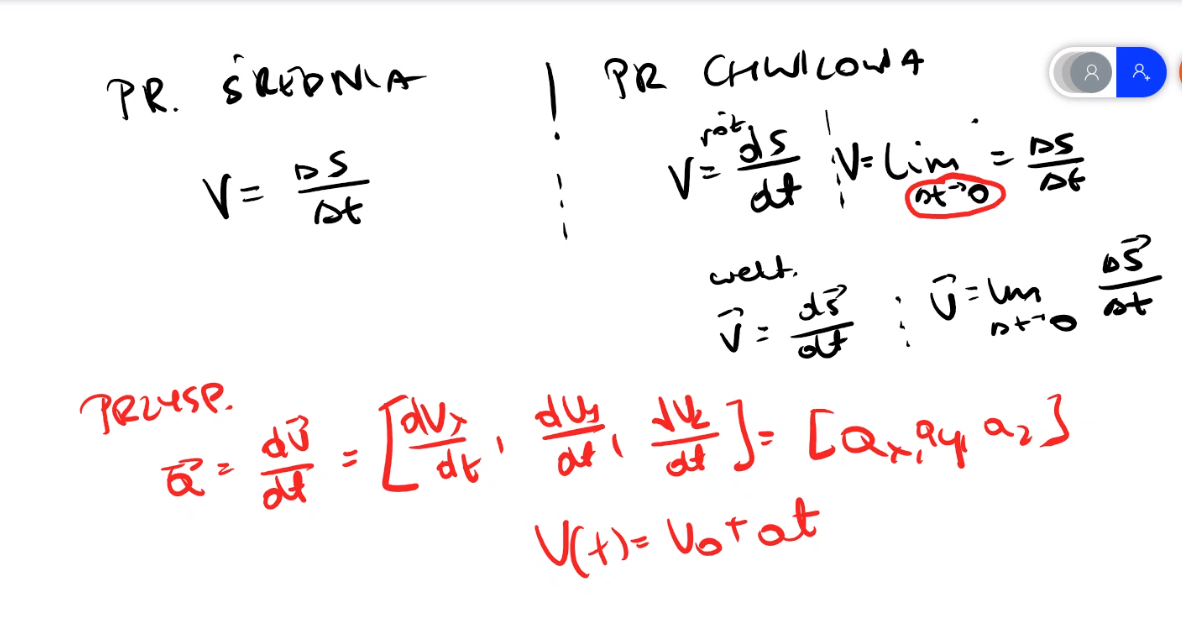 PR. ŚREDNIA
V = ΔS/Δt
PR CHWILOWA
V = dS/dt
V = Lim Δt→0 = ΔS/Δt
wekt.
V⃗ = dS⃗/dt
V⃗ = lim Δt→0 ΔS⃗/Δt
PRZYSP.
a⃗ = dV⃗/dt = [dVx/dt, dVy/dt, dVz/dt] = [ax, ay, az]
V(t) = V0 + at